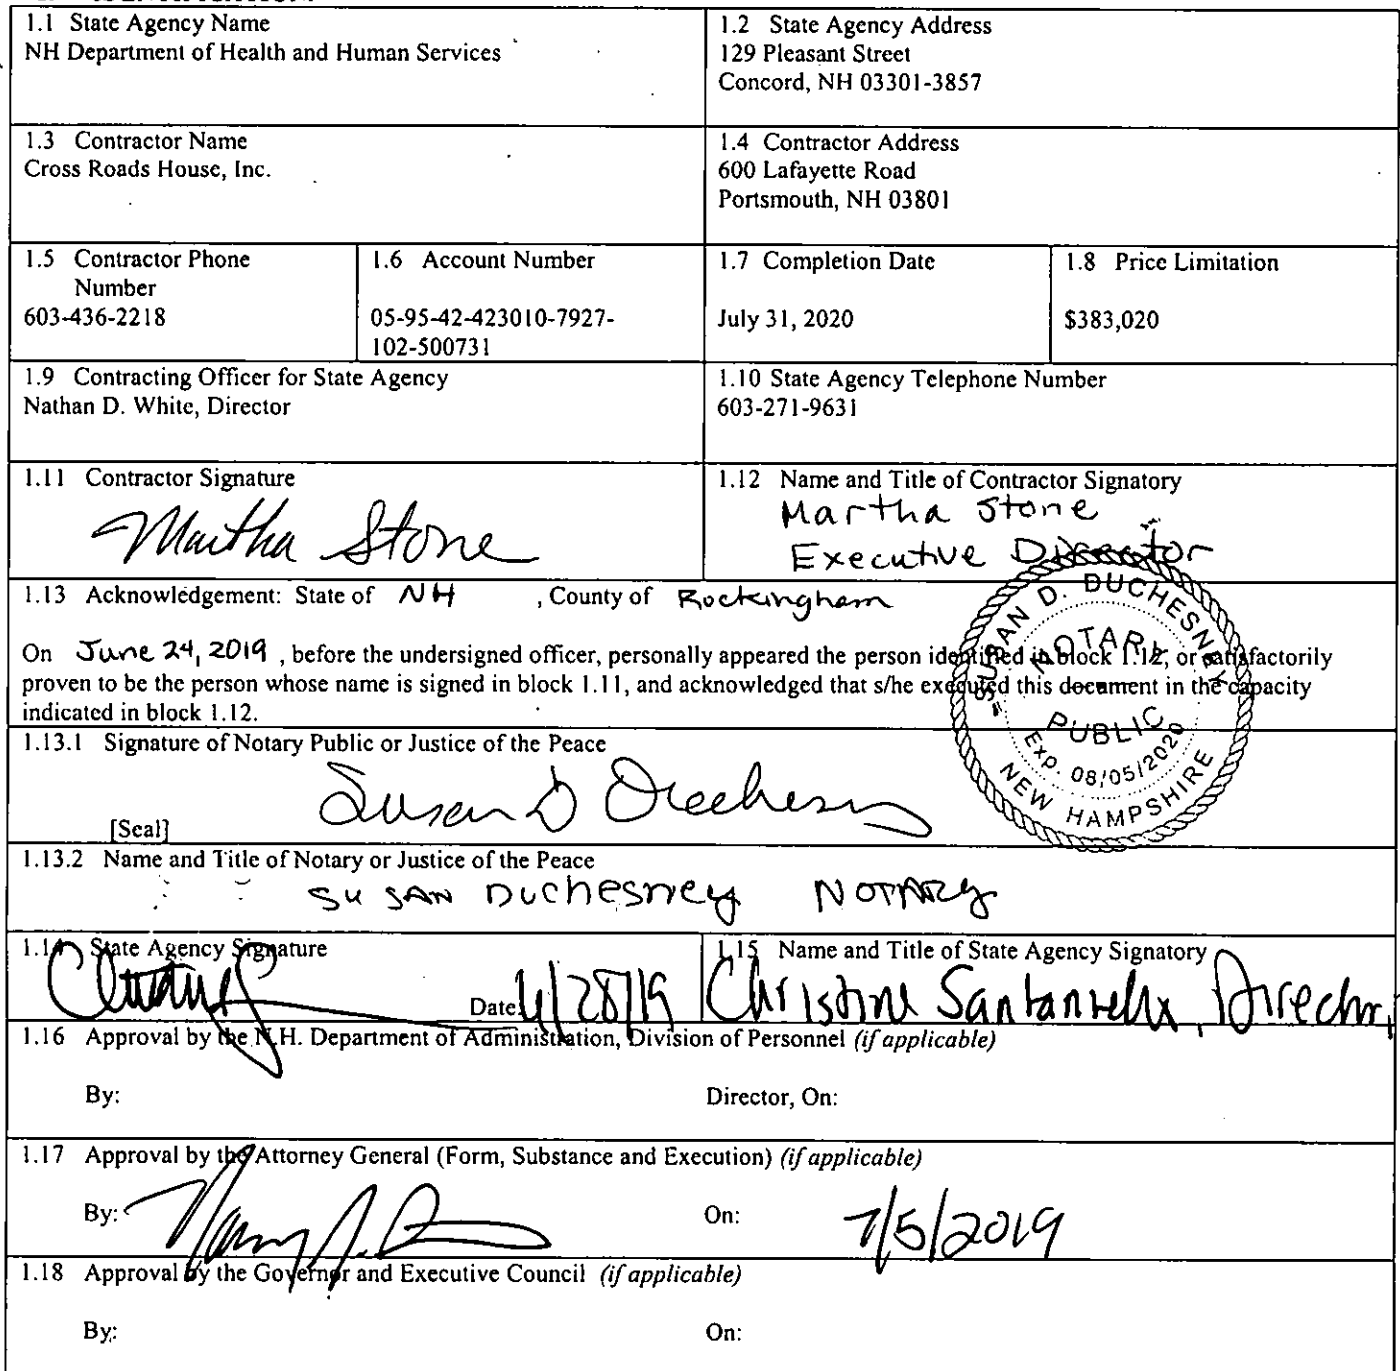 1.1 State Agency Name
NH Department of Health and Human Services
1.2 State Agency Address
129 Pleasant Street
Concord, NH 03301-3857
1.3 Contractor Name
Cross Roads House, Inc.
1.4 Contractor Address
600 Lafayette Road
Portsmouth, NH 03801
1.5 Contractor Phone
Number
603-436-2218
1.6 Account Number
05-95-42-423010-7927-
102-500731
1.7 Completion Date
July 31, 2020
1.8 Price Limitation
$383,020
1.9 Contracting Officer for State Agency
Nathan D. White, Director
1.10 State Agency Telephone Number
603-271-9631
1.11 Contractor Signature
Martha Stone
1.12 Name and Title of Contractor Signatory
Martha Stone
Executive Director
1.13 Acknowledgement: State of NH , County of Rockingham
On June 24, 2019 , before the undersigned officer, personally appeared the person identified in block 1.12, or satisfactorily
proven to be the person whose name is signed in block 1.11, and acknowledged that s/he executed this document in the capacity
indicated in block 1.12.
SUSAN D. DUCHESNEY
NOTARY
PUBLIC
Exp. 08/05/2020
NEW HAMPSHIRE
1.13.1 Signature of Notary Public or Justice of the Peace
Susan D Duchesney
[Seal]
1.13.2 Name and Title of Notary or Justice of the Peace
SUSAN Duchesney NOTARY
1.14 State Agency Signature
Date: 6/28/19
1.15 Name and Title of State Agency Signatory
Christine Santaniello, Director,
1.16 Approval by the N.H. Department of Administration, Division of Personnel (if applicable)
By:
Director, On:
1.17 Approval by the Attorney General (Form, Substance and Execution) (if applicable)
By:
On: 7/5/2019
1.18 Approval by the Governor and Executive Council (if applicable)
By:
On: